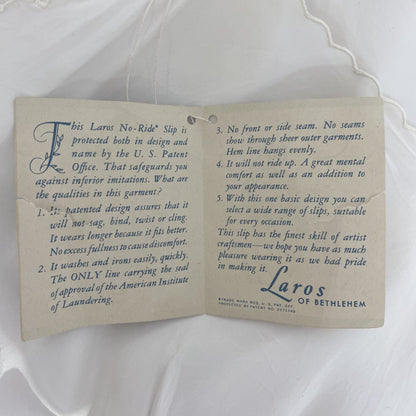 This Laros No-Ride* Slip is
protected both in design and
name by the U. S. Patent
Office. That safeguards you
against inferior imitations. What are
the qualities in this garment?
1. Its patented design assures that it
will not sag, bind, twist or cling.
It wears longer because it fits better.
No excess fullness to cause discomfort.
2. It washes and irons easily, quickly.
The ONLY line carrying the seal
of approval of the American Institute
of Laundering.
3. No front or side seam. No seams
show through sheer outer garments.
Hem line hangs evenly.
4. It will not ride up. A great mental
comfort as well as an addition to
your appearance.
5. With this one basic design you can
select a wide range of slips, suitable
for every occasion.
This slip has the finest skill of artist
craftsmen—we hope you have as much
pleasure wearing it as we had pride
in making it.
Laros
OF BETHLEHEM
*TRADE MARK REG. U. S. PAT. OFF.
PROTECTED BY PATENT NO.